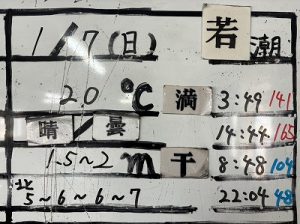 1/7(日) 若潮
20℃ 満 3:49 141
晴/曇 14:44 165
1.5~2m 干 8:48 104
北 5~6~6~7 22:04 48